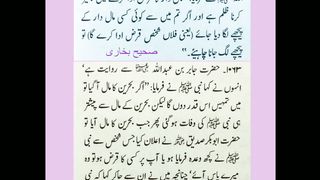 کرنا ظلم ہے اور اگر تم میں سے کوئی کسی مال دار کے
پیچھے لگا دیا جائے (یعنی فلاں شخص قرض ادا کرے گا) تو
پیچھے لگ جانا چاہیئے۔"
صحیح بخاری
۱۰۶۳۔ حضرت جابر بن عبداللہ ﷺ سے روایت ہے'
انہوں نے کہا نبی ﷺ نے فرمایا: "اگر بحرین کا مال آ گیا تو
میں تمہیں اس قدر دوں گا لیکن بحرین کے مال سے پیشتر
ہی نبی ﷺ کی وفات ہو گئی پھر جب بحرین کا مال آیا تو
حضرت ابوبکر صدیق نے اعلان کیا: جس سے نبی
ﷺ نے کچھ وعدہ فرمایا ہو یا آپ پر کسی کا قرض ہو تو وہ
میرے پاس آئے' چنانچہ میں نے ان سے جا کر کہا کہ نبی